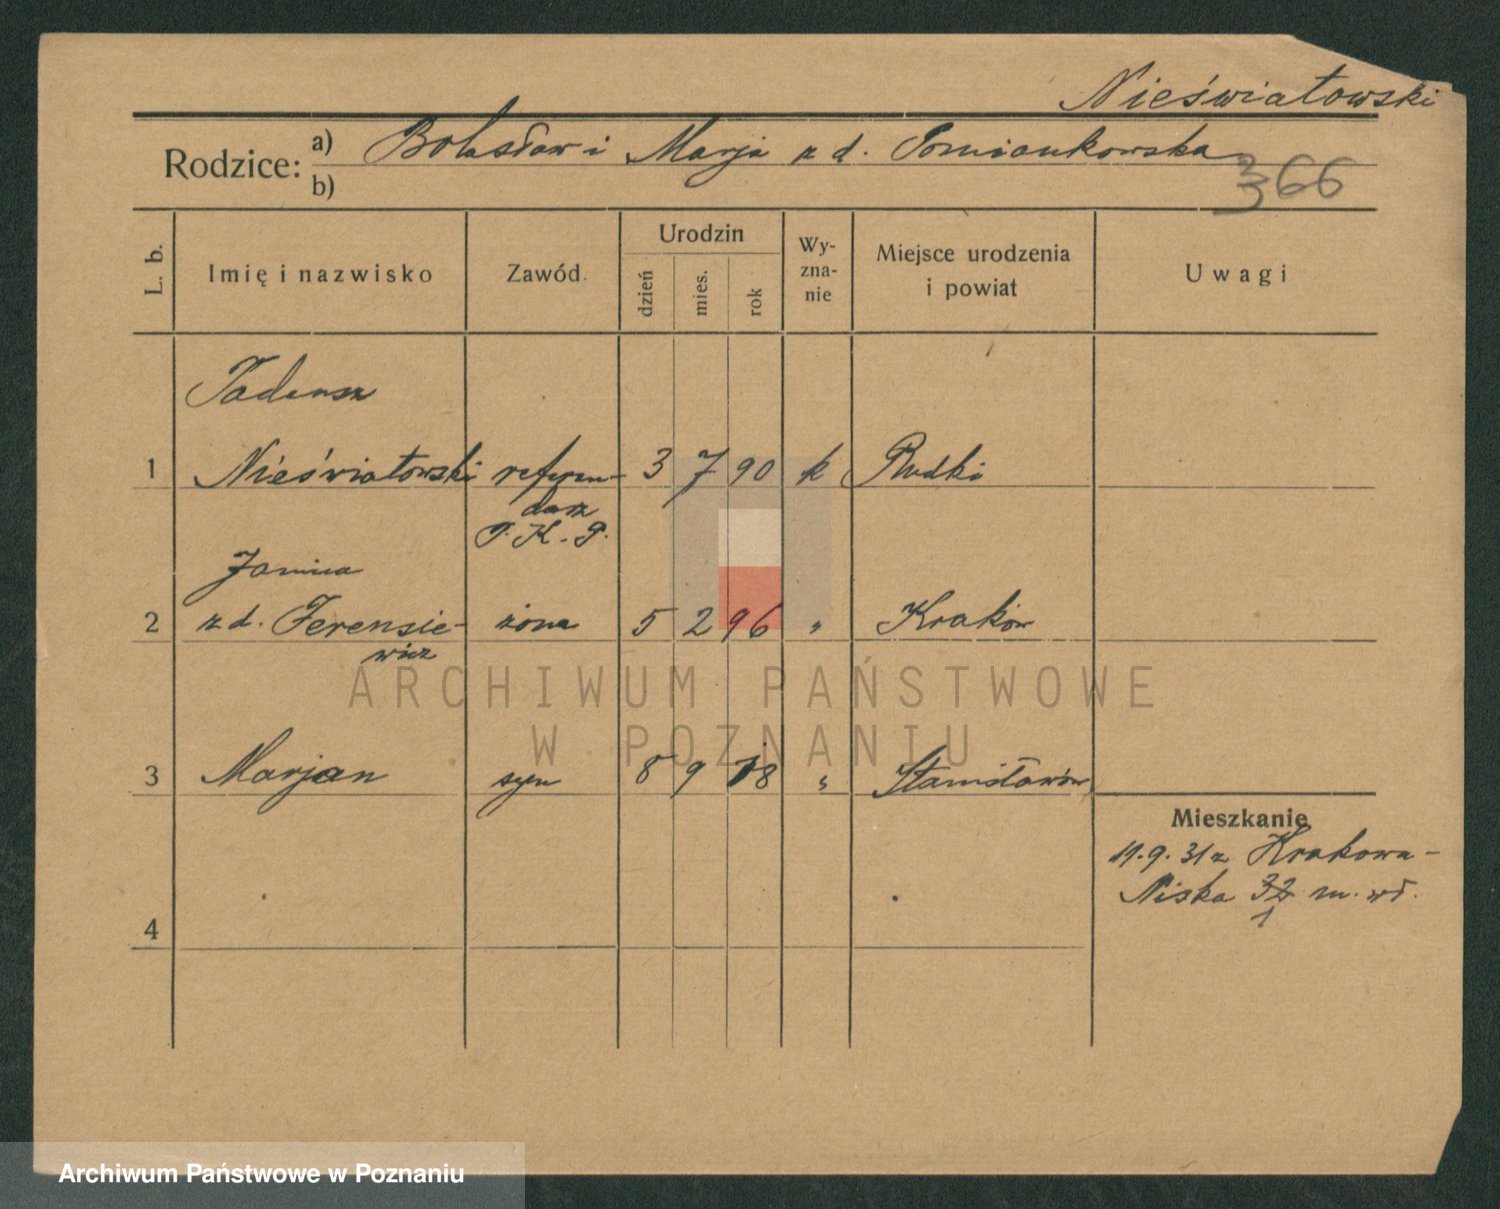 Nieświatowski
Rodzice: a) Bolesław i Marja z d. Pomiankowska
b)
366
L. b.
Imię i nazwisko
Zawód.
Urodzin
dzień
mies.
rok
Wy-
zna-
nie
Miejsce urodzenia
i powiat
Uwagi
Tadeusz
1 Nieświatowski referen- 3 7 90 k Rudki
darz
P. K. P.
Janina
2 z d. Ferensie- żona 5 2 96 " Kraków
wicz
ARCHIWUM PAŃSTWOWE
W POZNANIU
3 Marjan syn 8 9 18 " Stanisławów
Mieszkanie
11.9.31 z Krakowa-
Niska 32 m. wł.
1
4
Archiwum Państwowe w Poznaniu